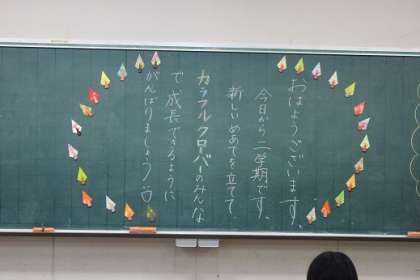 おはようございます。
今日から二学期です。
新しいめあてを立てて
カラフルクローバーのみんな
で成長できるように
がんばりましょう